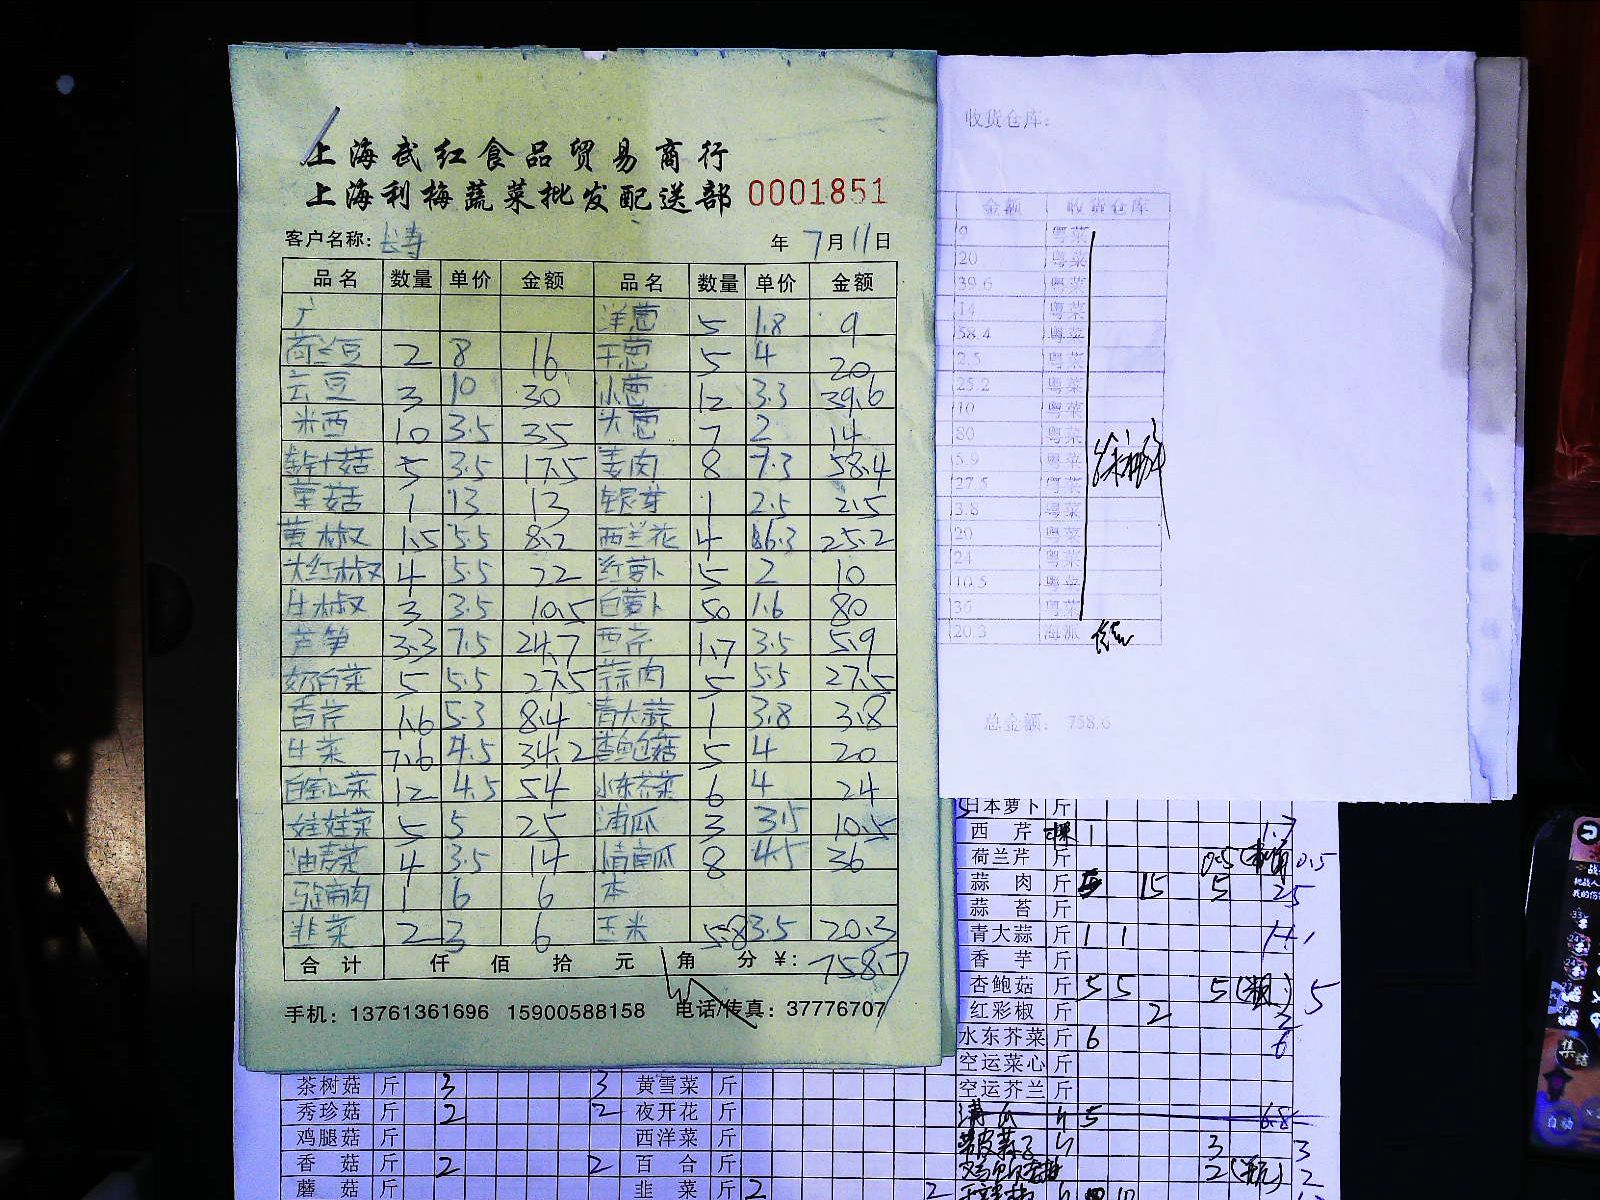 上海武红食品贸易商行
上海利梅蔬菜批发配送部 0001851
客户名称: 长寿 年 7月11日
品名 数量 单价 金额 品名 数量 单价 金额
广 洋葱 5 1.8 9
荷兰豆 2 8 16 干葱 5 4 20
云豆 3 10 30 小葱 12 3.3 39.6
米西 10 3.5 35 大葱 7 2 14
金针菇 5 3.5 17.5 姜肉 8 7.3 58.4
草菇 1 13 13 银芽 1 2.5 2.5
黄椒 1.5 5.5 8.2 西兰花 4 6.3 25.2
大红椒 4 5.5 22 红萝卜 5 2 10
生椒 3 3.5 10.5 白萝卜 50 1.6 80
芦笋 3.3 7.5 24.7 西芹 1.7 3.5 5.9
奶白菜 5 5.5 27.5 蒜肉 5 5.5 27.5
香芹 1.6 5.3 8.4 青大蒜 1 3.8 3.8
生菜 7.6 4.5 34.2 杏鲍菇 5 4 20
12 4.5 54 水东芥菜 6 4 24
娃娃菜 5 5 25 浦瓜 3 3.5 10.5
油麦菜 4 3.5 14 南瓜 8 4.5 36
1 6 6 本
韭菜 2 3 6 玉米 5.8 3.5 20.3
合计 仟 佰 拾 元 角 分 ¥: 758.7
手机: 13761361696 15900588158 电话/传真: 37776707
收货仓库:
金额 收货仓库
9 粤菜
20 粤菜
39.6 粤菜
14 粤菜
58.4 粤菜
2.5 粤菜
25.2 粤菜
10 粤菜
80 粤菜
5.9 粤菜
27.5 粤菜
3.8 粤菜
20 粤菜
24 粤菜
10.5 粤菜
36 粤菜
20.3 海派
总金额: 758.6
日本萝卜 斤
西芹 棵 1 1.7
荷兰芹 斤 0.5 0.5
蒜肉 斤 5 15 5 25
蒜苔 斤
青大蒜 斤 1 1
香芋 斤
杏鲍菇 斤 5 5 5 5
红彩椒 斤 2 2
水东芥菜 斤 6 6
空运菜心 斤
空运芥兰 斤
浦瓜 斤 5 6.8
3 3
2 2
茶树菇 斤 3 3 黄雪菜 斤
秀珍菇 斤 2 2 夜开花 斤
鸡腿菇 斤 西洋菜 斤
香菇 斤 2 2 百合 斤
蘑菇 斤 韭菜 斤 2 2